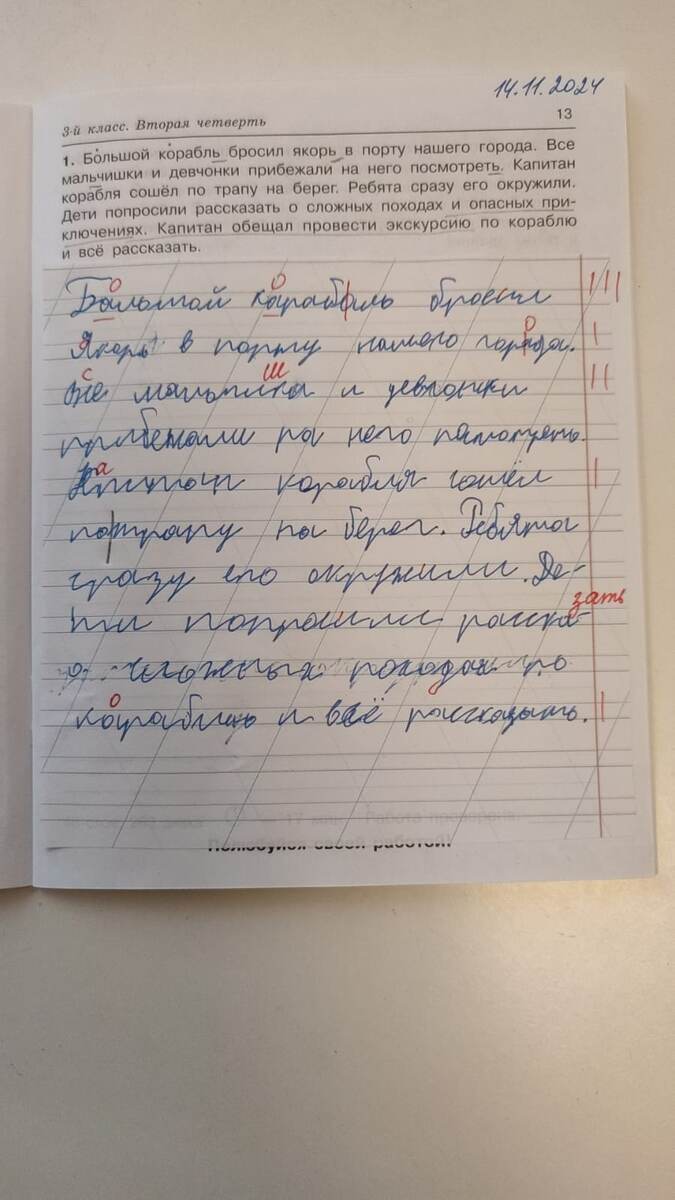 14.11.2024
3-й класс. Вторая четверть 13
1. Большой корабль бросил якорь в порту нашего города. Все
мальчишки и девчонки прибежали на него посмотреть. Капитан
корабля сошёл по трапу на берег. Ребята сразу его окружили.
Дети попросили рассказать о сложных походах и опасных при-
ключениях. Капитан обещал провести экскурсию по кораблю
и всё рассказать.
о о
Бальшой карабль бросил
о
Якорь в порту нашего города.
с ш
и девчонки
прибежали на него
а
корабля сошёл
потрапу на берег. Ребята
сразу его окружили. Де-
зать
ти попросили расска-
о сложных походах по
о
и всё
Полюбуйся своей работой!